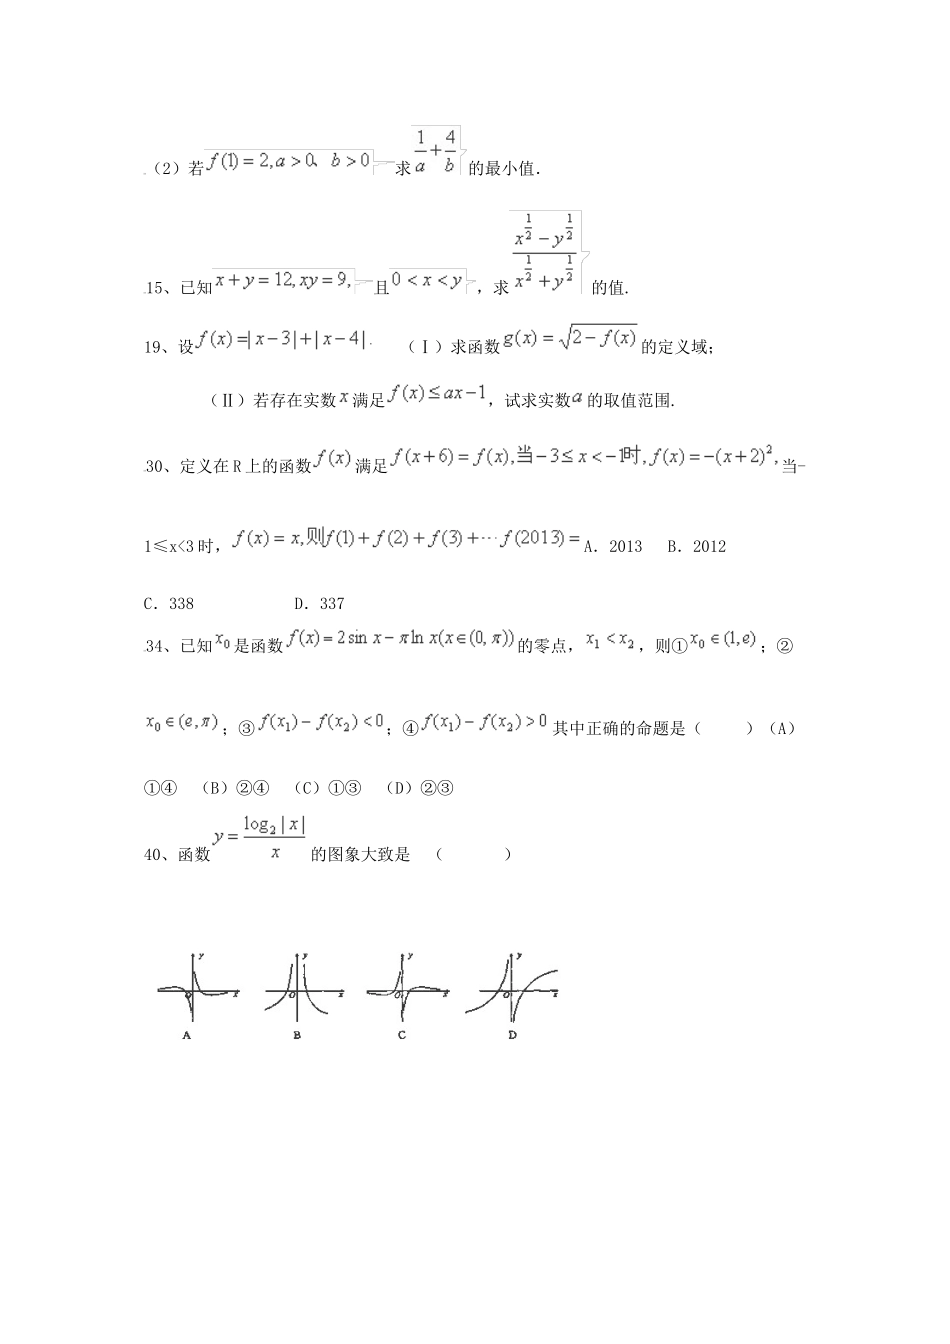 (2)若f(1)=2,a>0、b>0求1/a+4/b的最小值.
15、已知x+y=12,xy=9,且0<x<y,求(x^(1/2)-y^(1/2))/(x^(1/2)+y^(1/2))的值.
19、设f(x)=|x-3|+|x-4|. (Ⅰ)求函数g(x)=√(2-f(x))的定义域;
(Ⅱ)若存在实数x满足f(x)≤ax-1,试求实数a的取值范围.
30、定义在R上的函数f(x)满足f(x+6)=f(x),当-3≤x<-1时,f(x)=-(x+2)²,当-
1≤x<3时,f(x)=x,则f(1)+f(2)+f(3)+···f(2013)=A.2013 B.2012
C.338 D.337
34、已知x₀是函数f(x)=2sin x-πln x(x∈(0,π))的零点,x₁<x₂,则①x₀∈(1,e);②
x₀∈(e,π);③f(x₁)-f(x₂)<0;④f(x₁)-f(x₂)>0其中正确的命题是( )(A)
①④ (B)②④ (C)①③ (D)②③
40、函数y=log₂|x|/x的图象大致是 ( )
y y y y
O x O x O x O x
A B C D